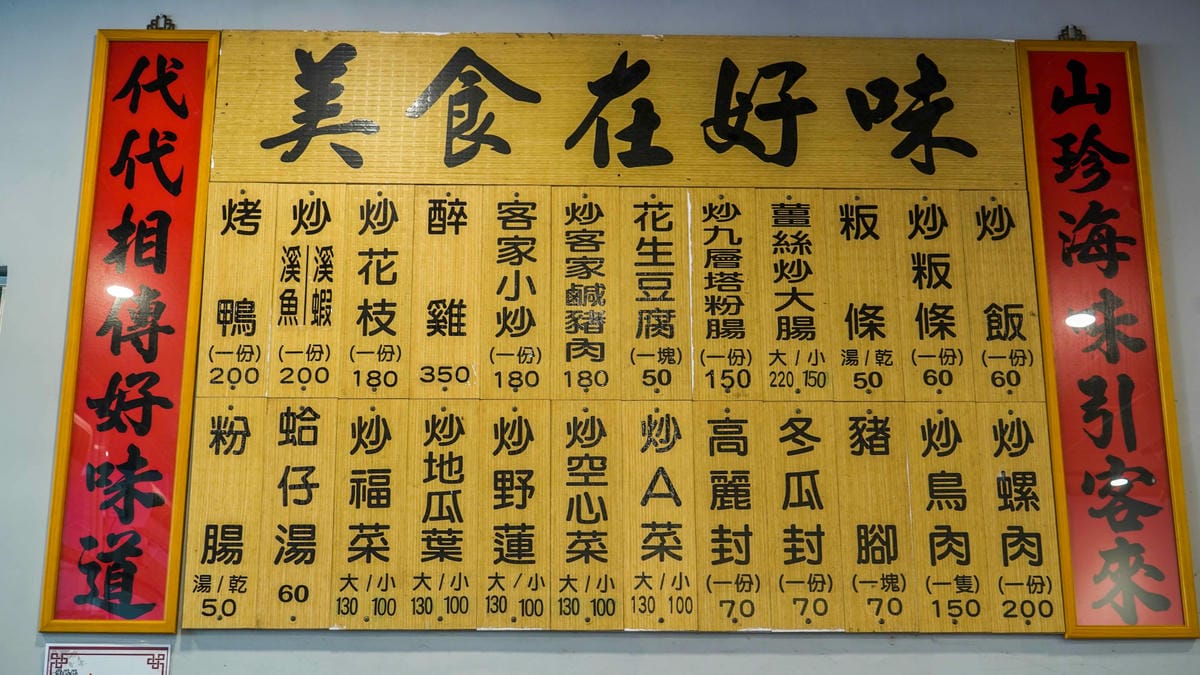 美食在好味
山珍海味引客來
炒飯 (一份) 60
炒粄條 (一份) 60
粄條 湯/乾 50
薑絲炒大腸 大/小 220 150
炒九層塔粉腸 (一份) 150
花生豆腐 (一塊) 50
炒客家鹹豬肉 180
客家小炒 (一份) 180
醉雞 350
炒花枝 (一份) 180
炒溪蝦|溪魚 (一份) 200
烤鴨 (一份) 200
炒螺肉 (一份) 200
炒鳥肉 (一隻) 150
豬腳 (一塊) 70
冬瓜封 (一份) 70
高麗封 (一份) 70
炒A菜 大/小 130 100
炒空心菜 大/小 130 100
炒野蓮 大/小 130 100
炒地瓜葉 大/小 130 100
炒福菜 大/小 130 100
蛤仔湯 60
粉腸 湯/乾 50
代代相傳好味道